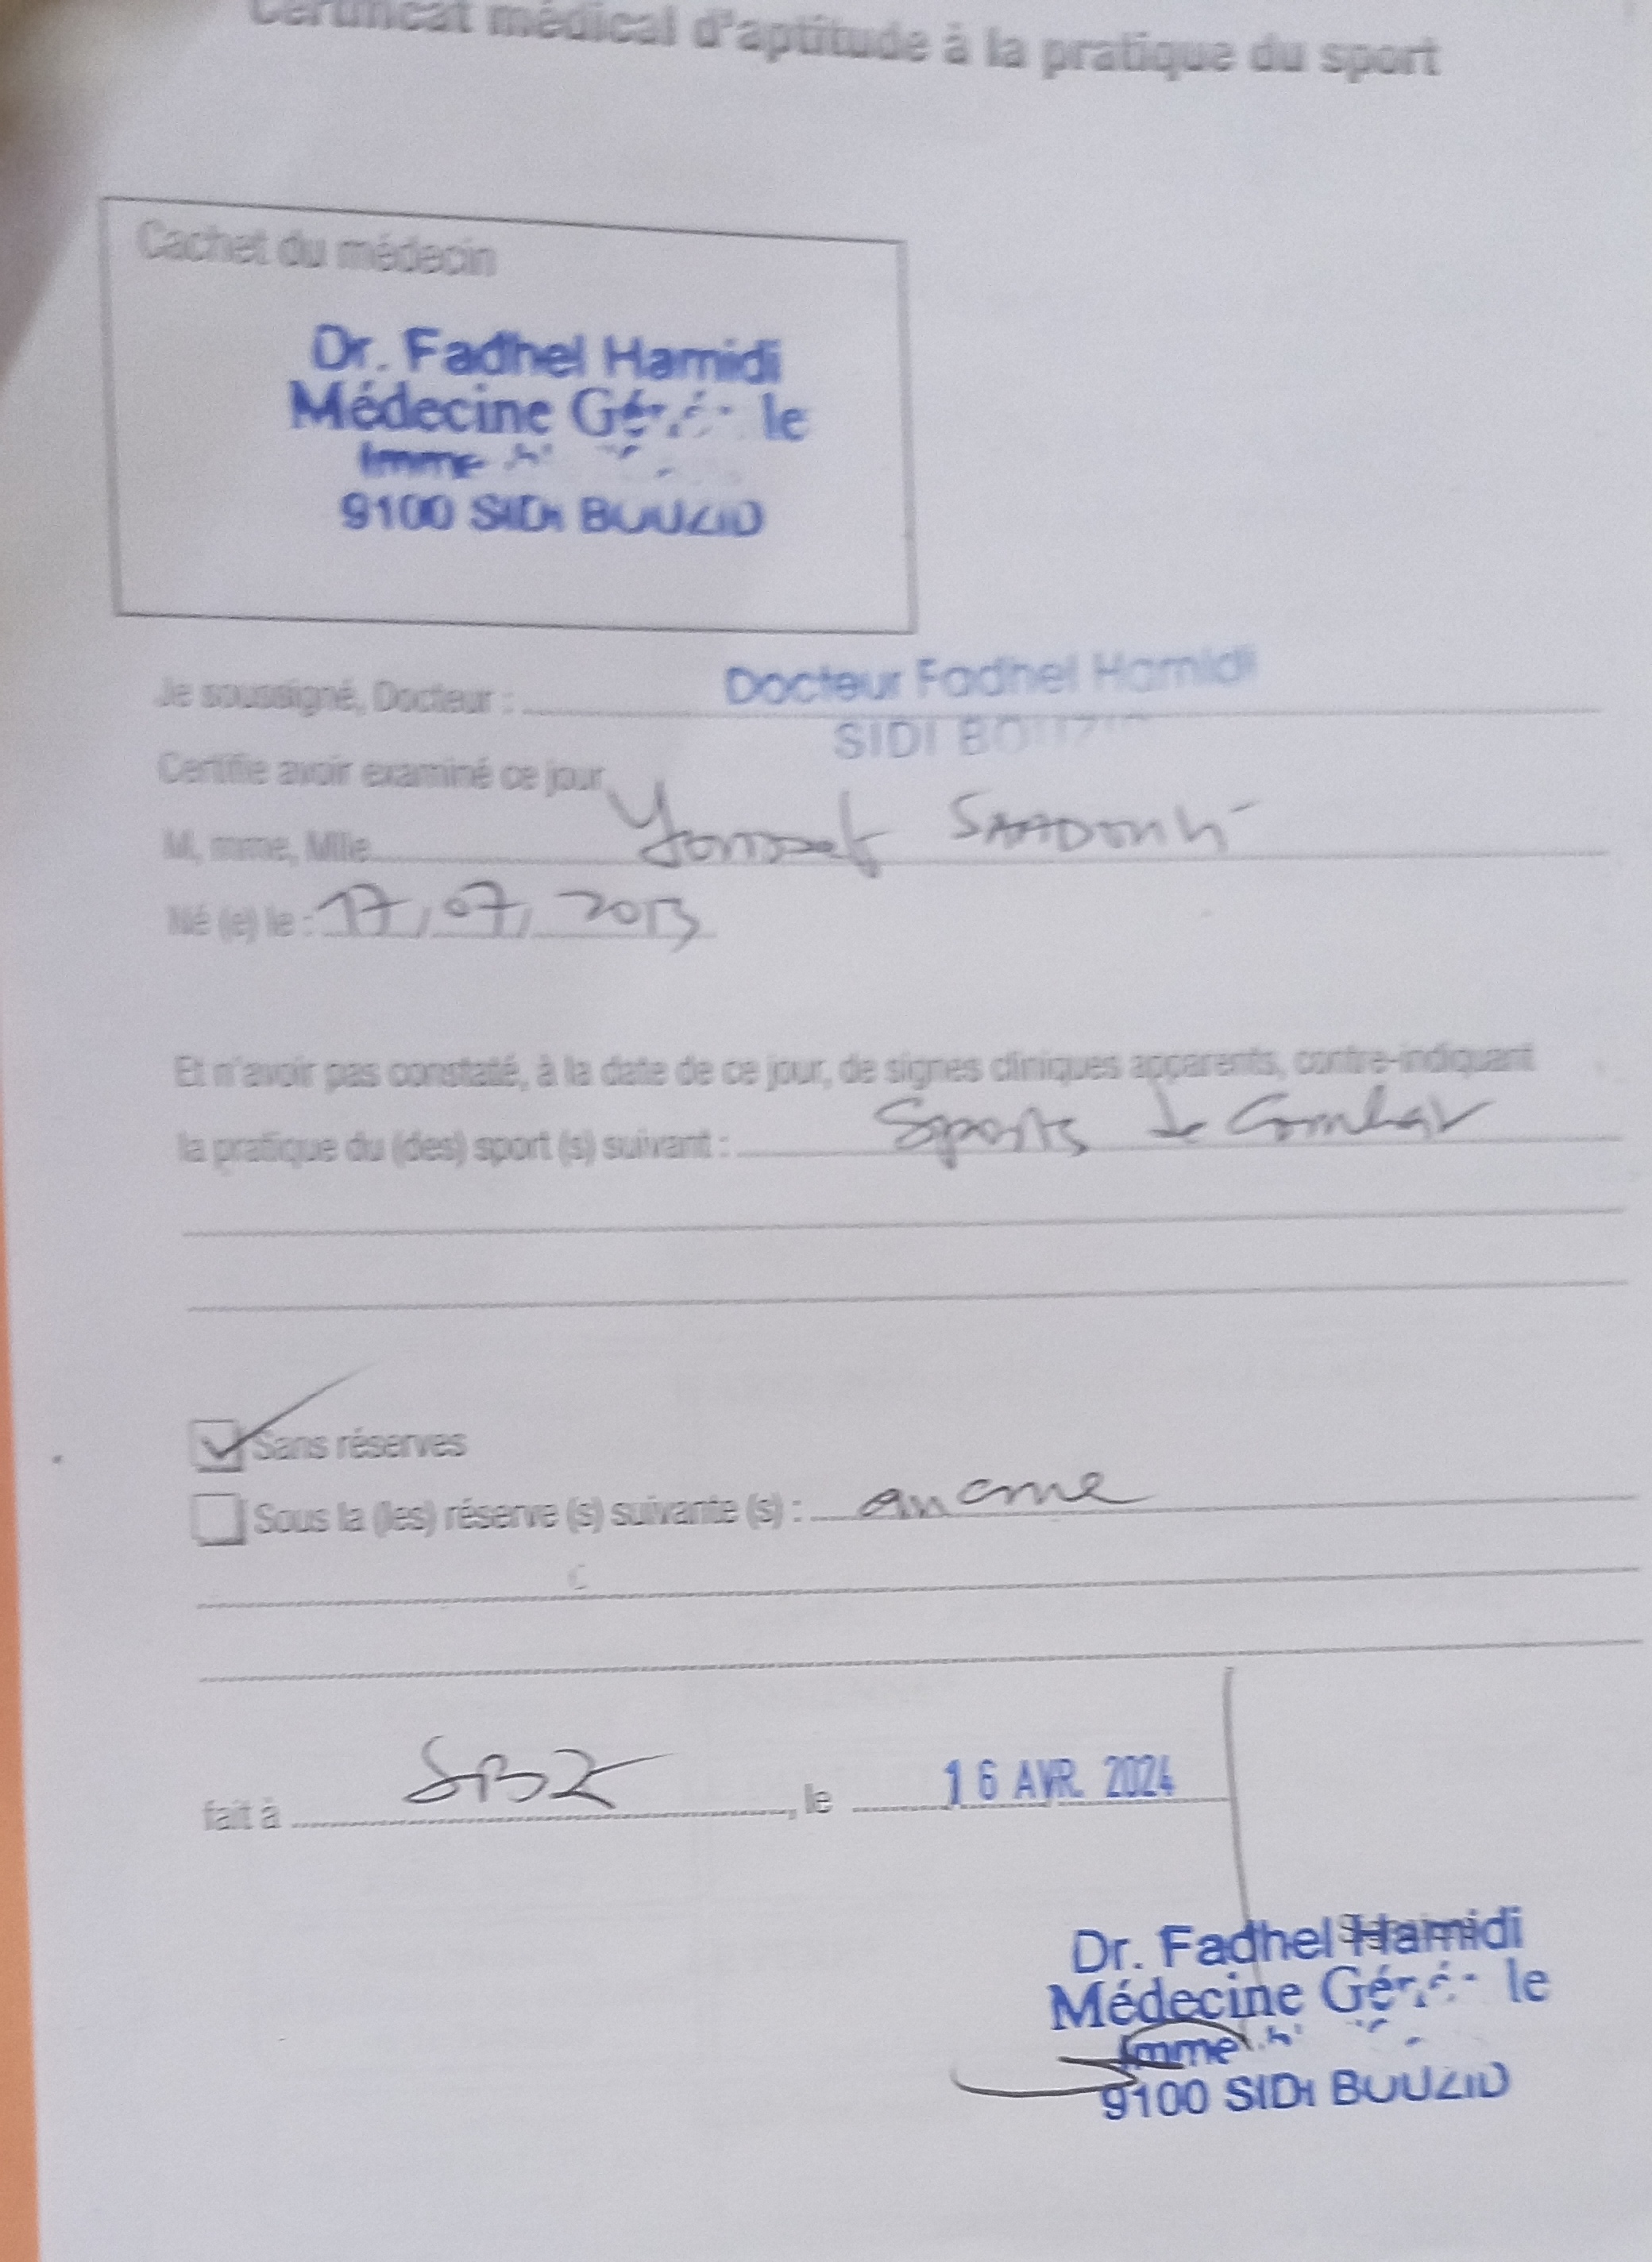 Certificat médical d'aptitude à la pratique du sport
Cachet du médecin
Dr. Fadhel Hamidi
Médecine
9100 SIDI BOUZID
Je soussigné, Docteur : Docteur Fadhel Hamidi
SIDI
Certifie avoir examiné ce jour
M, mme, Mlle Youssef SAADOUNI
Né (e) le : 17/07/2013
Et n'avoir pas constaté, à la date de ce jour, de signes cliniques apparents, contre-indiquant
la pratique du (des) sport (s) suivant : Sports de Combat
Sans réserves
Sous la (les) réserve (s) suivante (s) : aucune
fait à SBZ, le 16 AVR. 2024
Dr. Fadhel Hamidi
Médecine
9100 SIDI BOUZID